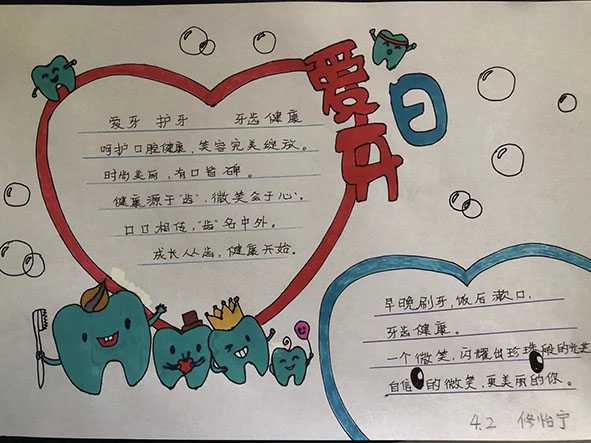 爱牙日
爱牙 护牙 牙齿健康
呵护口腔健康，笑容完美绽放。
时尚美丽，有口皆碑。
健康源于“齿”，微笑会于心。
口口相传，“齿”名中外。
成长从齿，健康开始。
早晚刷牙，饭后漱口，
牙齿健康。
一个微笑，闪耀出珍珠般的光芒
自信的微笑，更美丽的你。
4.2 修怡宁